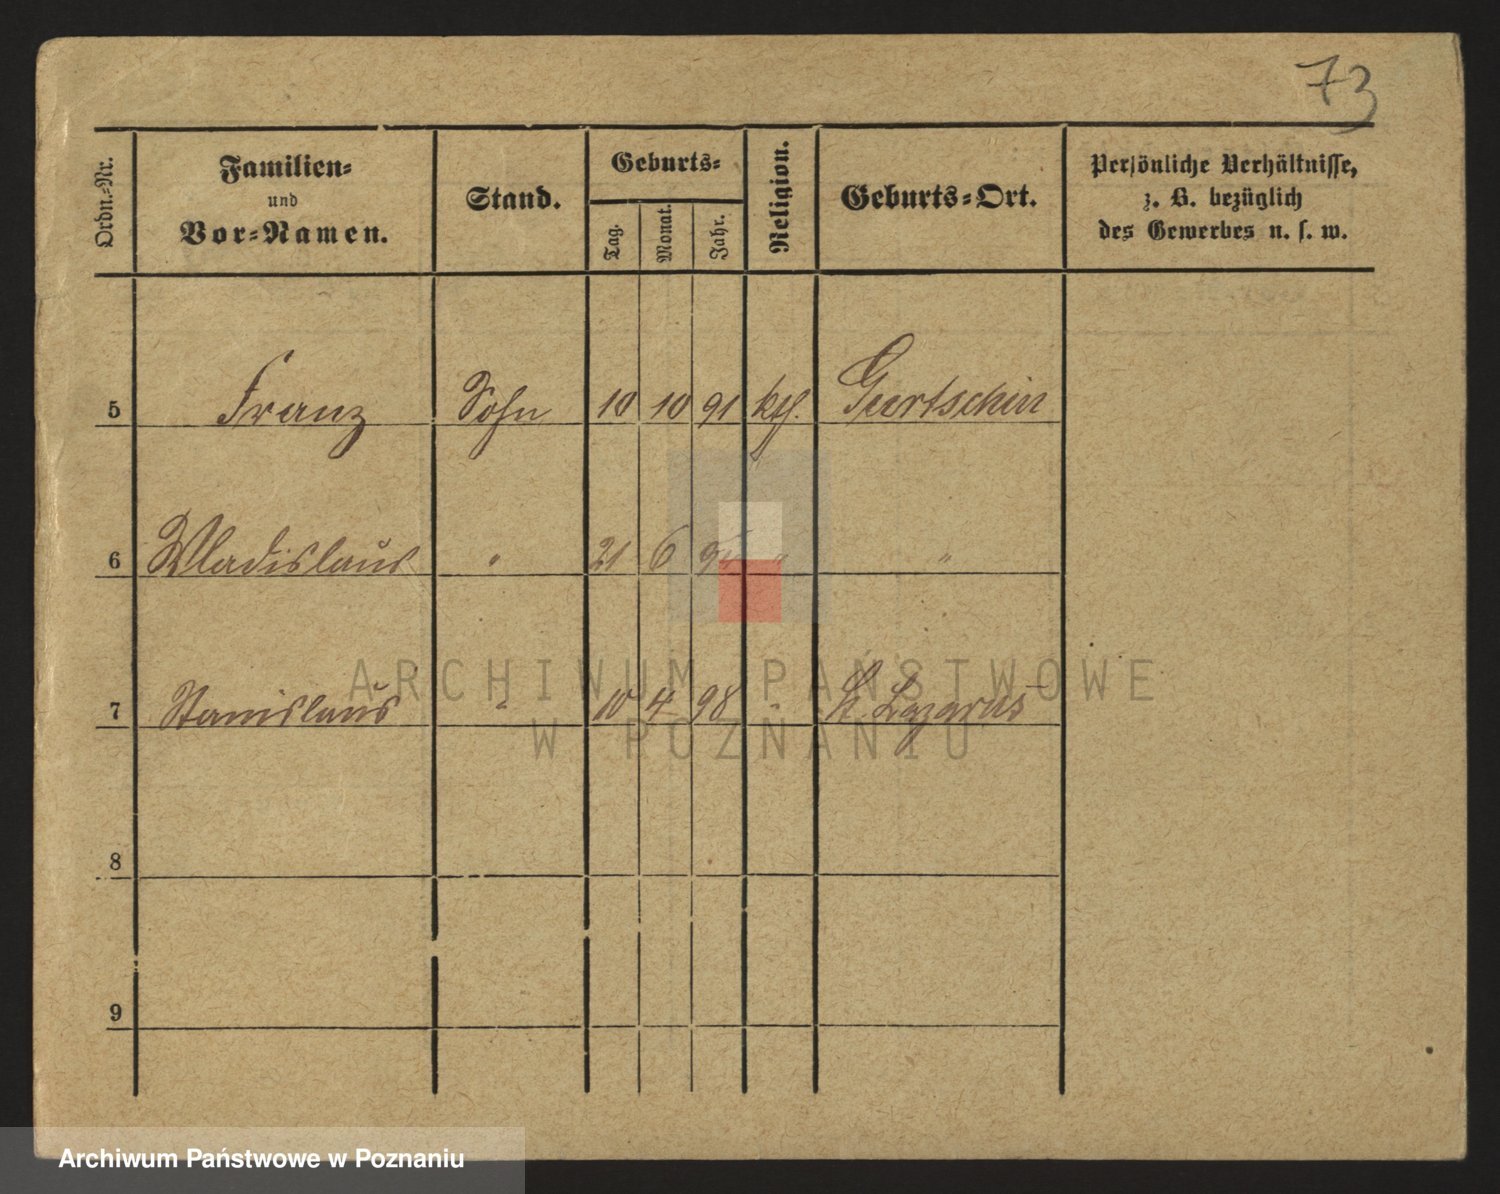 73
Ordn.-Nr. Familien- und Vor-Namen. Stand. Geburts- Tag. Monat. Jahr. Religion. Geburts-Ort. Persönliche Verhältnisse, z. B. bezüglich des Gewerbes u. s. w.
5 Franz Sohn 10 10 91 kth. Gurtschin
6 Wladislaus " 21 6 " "
7 Stanislaus " 10 4 98 " St. Lazarus
8
9
ARCHIWUM PAŃSTWOWE
W POZNANIU
Archiwum Państwowe w Poznaniu